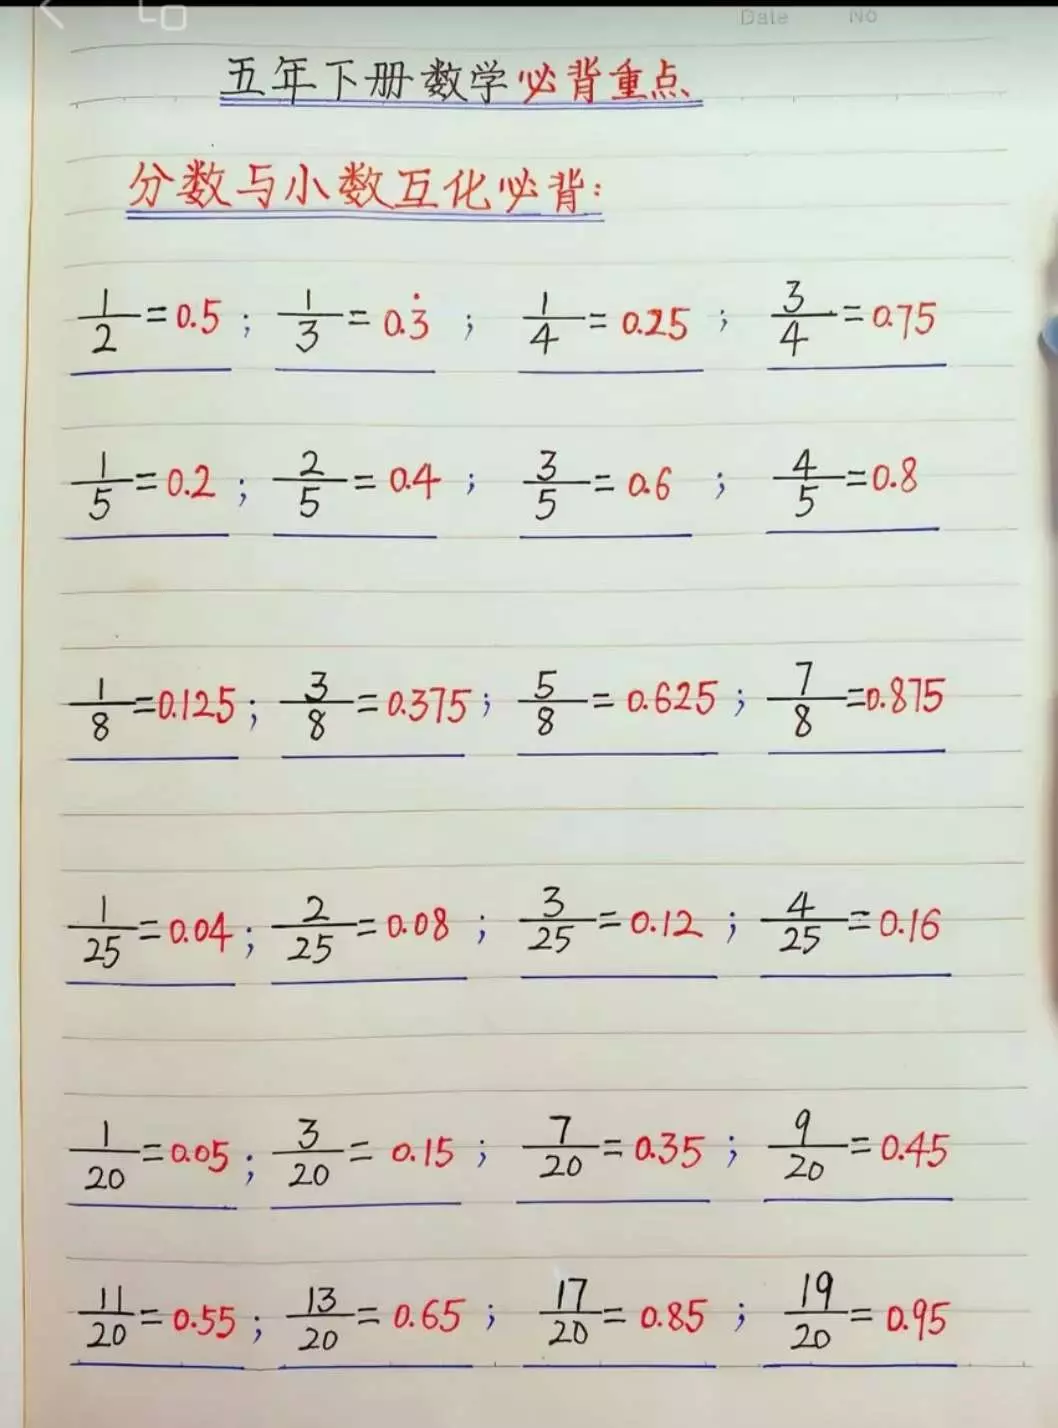 Date No
五年下册数学必背重点
分数与小数互化必背:
1/2=0.5; 1/3=0.3̇; 1/4=0.25; 3/4=0.75
1/5=0.2; 2/5=0.4; 3/5=0.6; 4/5=0.8
1/8=0.125; 3/8=0.375; 5/8=0.625; 7/8=0.875
1/25=0.04; 2/25=0.08; 3/25=0.12; 4/25=0.16
1/20=0.05; 3/20=0.15; 7/20=0.35; 9/20=0.45
11/20=0.55; 13/20=0.65; 17/20=0.85; 19/20=0.95